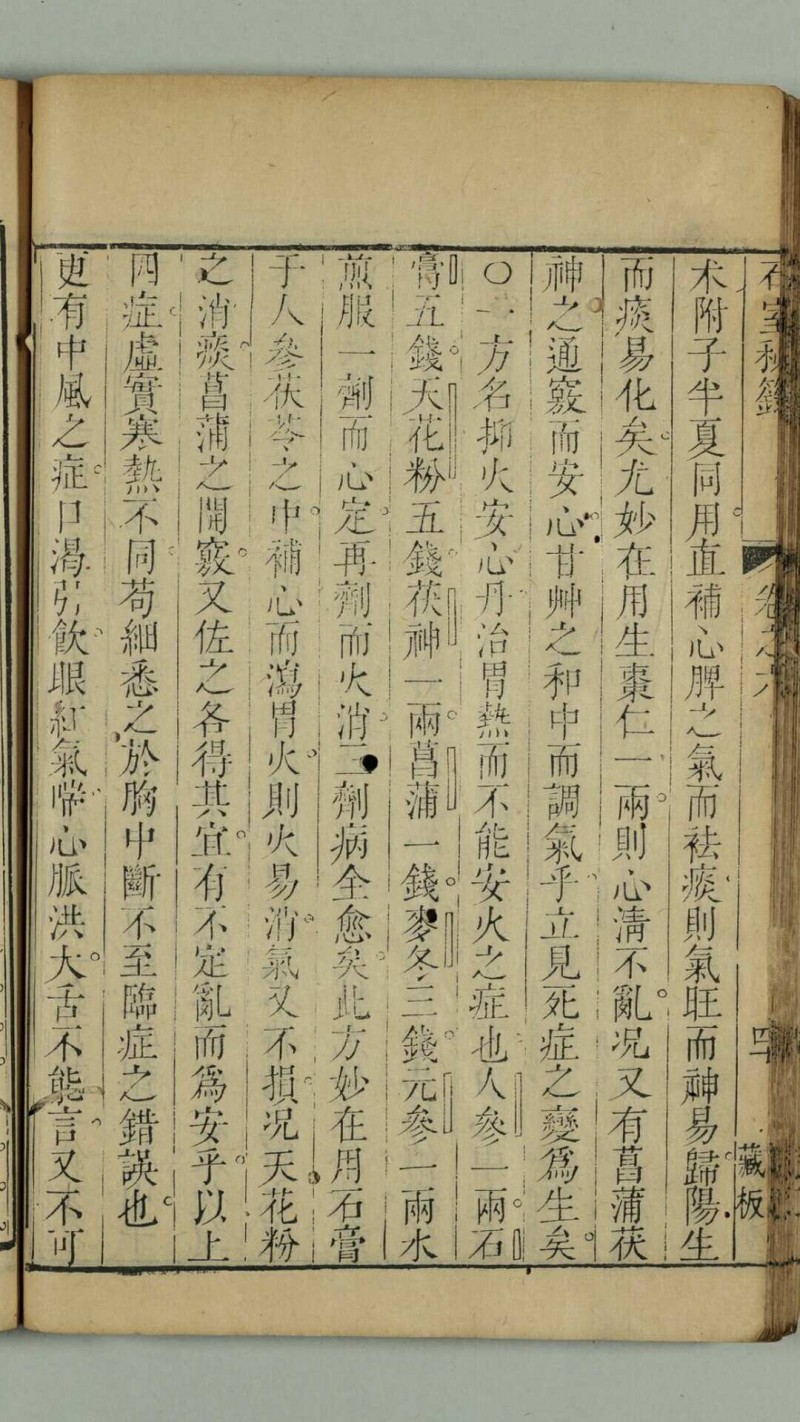 石室秘籙 卷之六 藏板
术附子半夏同用直補心脾之氣而袪痰則氣旺而神易歸陽生
而痰易化矣尤妙在用生棗仁一兩則心淸不亂况又有菖蒲茯
神之通竅而安心甘艸之和中而調氣乎立見死症之變爲生矣
○一方名抑火安心丹治胃熱而不能安火之症也人參一兩石
膏五錢天花粉五錢茯神一兩菖蒲一錢麥冬三錢元參一兩水
煎服一劑而心定再劑而火消三劑病全愈矣此方妙在用石膏
于人參茯苓之中補心而瀉胃火則火易消氣又不損况天花粉
之消痰菖蒲之開竅又佐之各得其宜有不定亂而爲安乎以上
四症虛實寒熱不同苟細悉之於胸中斷不至臨症之錯誤也
更有中風之症口渴引飲眼紅氣喘心脈洪大舌不能言又不可